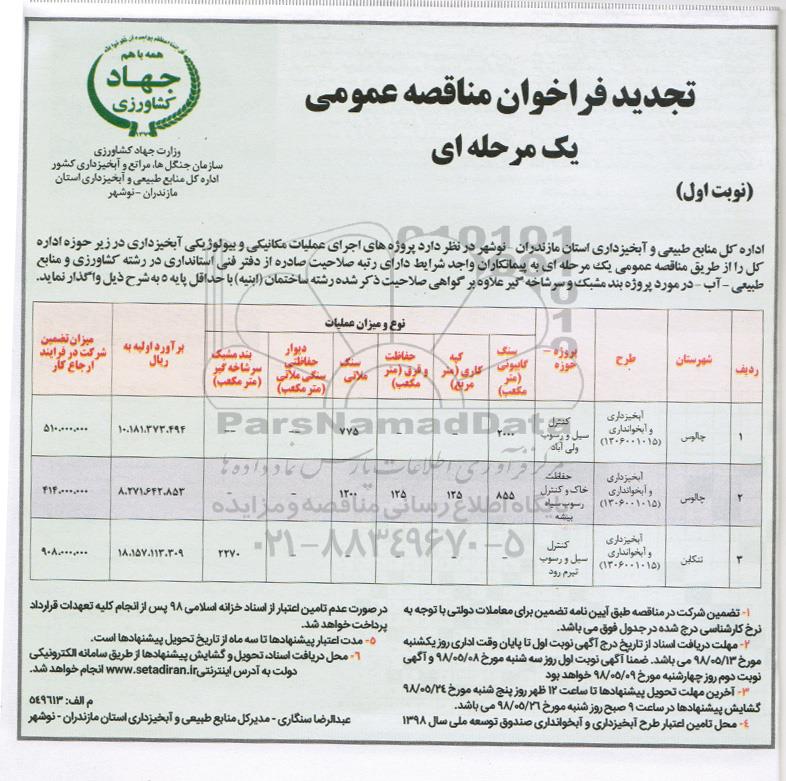 همه با هم
جهاد
کشاورزی
تجدید فراخوان مناقصه عمومی
یک مرحله ای
وزارت جهاد کشاورزی
سازمان جنگل ها، مراتع و آبخیزداری کشور
اداره کل منابع طبیعی و آبخیزداری استان
مازندران - نوشهر
(نوبت اول)
اداره کل منابع طبیعی و آبخیزداری استان مازندران - نوشهر در نظر دارد پروژه های اجرای عملیات مکانیکی و بیولوژیکی آبخیزداری در زیر حوزه اداره
کل را از طریق مناقصه عمومی یک مرحله ای به پیمانکاران واجد شرایط دارای رتبه صلاحیت صادره از دفتر فنی استانداری در رشته کشاورزی و منابع
طبیعی - آب - در مورد پروژه بند مشبک و سرشاخه گیر علاوه بر گواهی صلاحیت ذکر شده رشته ساختمان (ابنیه) با حداقل پایه ۵ به شرح ذیل واگذار نماید.
ردیف شهرستان طرح پروژه - حوزه نوع و میزان عملیات برآورد اولیه به ریال میزان تضمین شرکت در فرایند ارجاع کار
سنگ گابیونی (متر مکعب) کپه کاری (متر مربع) حفاظت و قرق (متر مکعب) سنگ ملاتی دیوار حفاظتی سنگی ملاتی (متر مکعب) بند مشبک سرشاخه گیر (متر مکعب)
۱ چالوس آبخیزداری و آبخوانداری (۱۳۰۶۰۰۱۰۱۵) کنترل سیل و رسوب ولی آباد ۲۰۰۰ - - ۷۷۵ - -- ۱۰.۱۸۱.۳۷۳.۴۹۴ ۵۱۰.۰۰۰.۰۰۰
۲ چالوس آبخیزداری و آبخوانداری (۱۳۰۶۰۰۱۰۱۵) حفاظت خاک و کنترل رسوب سیاه بیشه ۸۵۵ ۱۲۵ ۱۲۵ ۱۲۰۰ - - ۸.۲۷۱.۶۴۲.۸۵۳ ۴۱۴.۰۰۰.۰۰۰
۳ تنکابن آبخیزداری و آبخوانداری (۱۳۰۶۰۰۱۰۱۵) کنترل سیل و رسوب تیرم رود - - - - - ۲۲۷۰ ۱۸.۱۵۷.۱۱۳.۳۰۹ ۹۰۸.۰۰۰.۰۰۰
ParsNamadData
مرکز فرآوری اطلاعات پارس نماد داده ها
پایگاه اطلاع رسانی مناقصه و مزایده
۰۲۱-۸۸۳۴۹۶۷۰-۵
۱- تضمین شرکت در مناقصه طبق آیین نامه تضمین برای معاملات دولتی با توجه به
نرخ کارشناسی درج شده در جدول فوق می باشد.
۲- مهلت دریافت اسناد از تاریخ درج آگهی نوبت اول تا پایان وقت اداری روز یکشنبه
مورخ ۹۸/۰۵/۱۳ می باشد. ضمنا آگهی نوبت اول روز سه شنبه مورخ ۹۸/۰۵/۰۸ و آگهی
نوبت دوم روز چهارشنبه مورخ ۹۸/۰۵/۰۹ خواهد بود
۳- آخرین مهلت تحویل پیشنهادها تا ساعت ۱۲ ظهر روز پنج شنبه مورخ ۹۸/۰۵/۲۴
گشایش پیشنهادها در ساعت ۹ صبح روز شنبه مورخ ۹۸/۰۵/۲۶ می باشد.
۴- محل تامین اعتبار طرح آبخیزداری و آبخوانداری صندوق توسعه ملی سال ۱۳۹۸
در صورت عدم تامین اعتبار از اسناد خزانه اسلامی ۹۸ پس از انجام کلیه تعهدات قرارداد
پرداخت خواهد شد.
۵- مدت اعتبار پیشنهادها تا سه ماه از تاریخ تحویل پیشنهادها است.
۶- محل دریافت اسناد، تحویل و گشایش پیشنهادها از طریق سامانه الکترونیکی
دولت به آدرس اینترنتی www.setadiran.ir انجام خواهد شد.
م الف: ۵۴۹۶۱۳
عبدالرضا سنگاری - مدیرکل منابع طبیعی و آبخیزداری استان مازندران - نوشهر